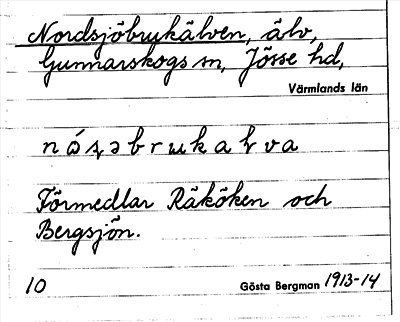 Nordsjöbrukälven, älv,
Gunnarskogs sn, Jösse hd,
Värmlands län
Förmedlar Räköken och
Bergsjön.
10
Gösta Bergman 1913-14